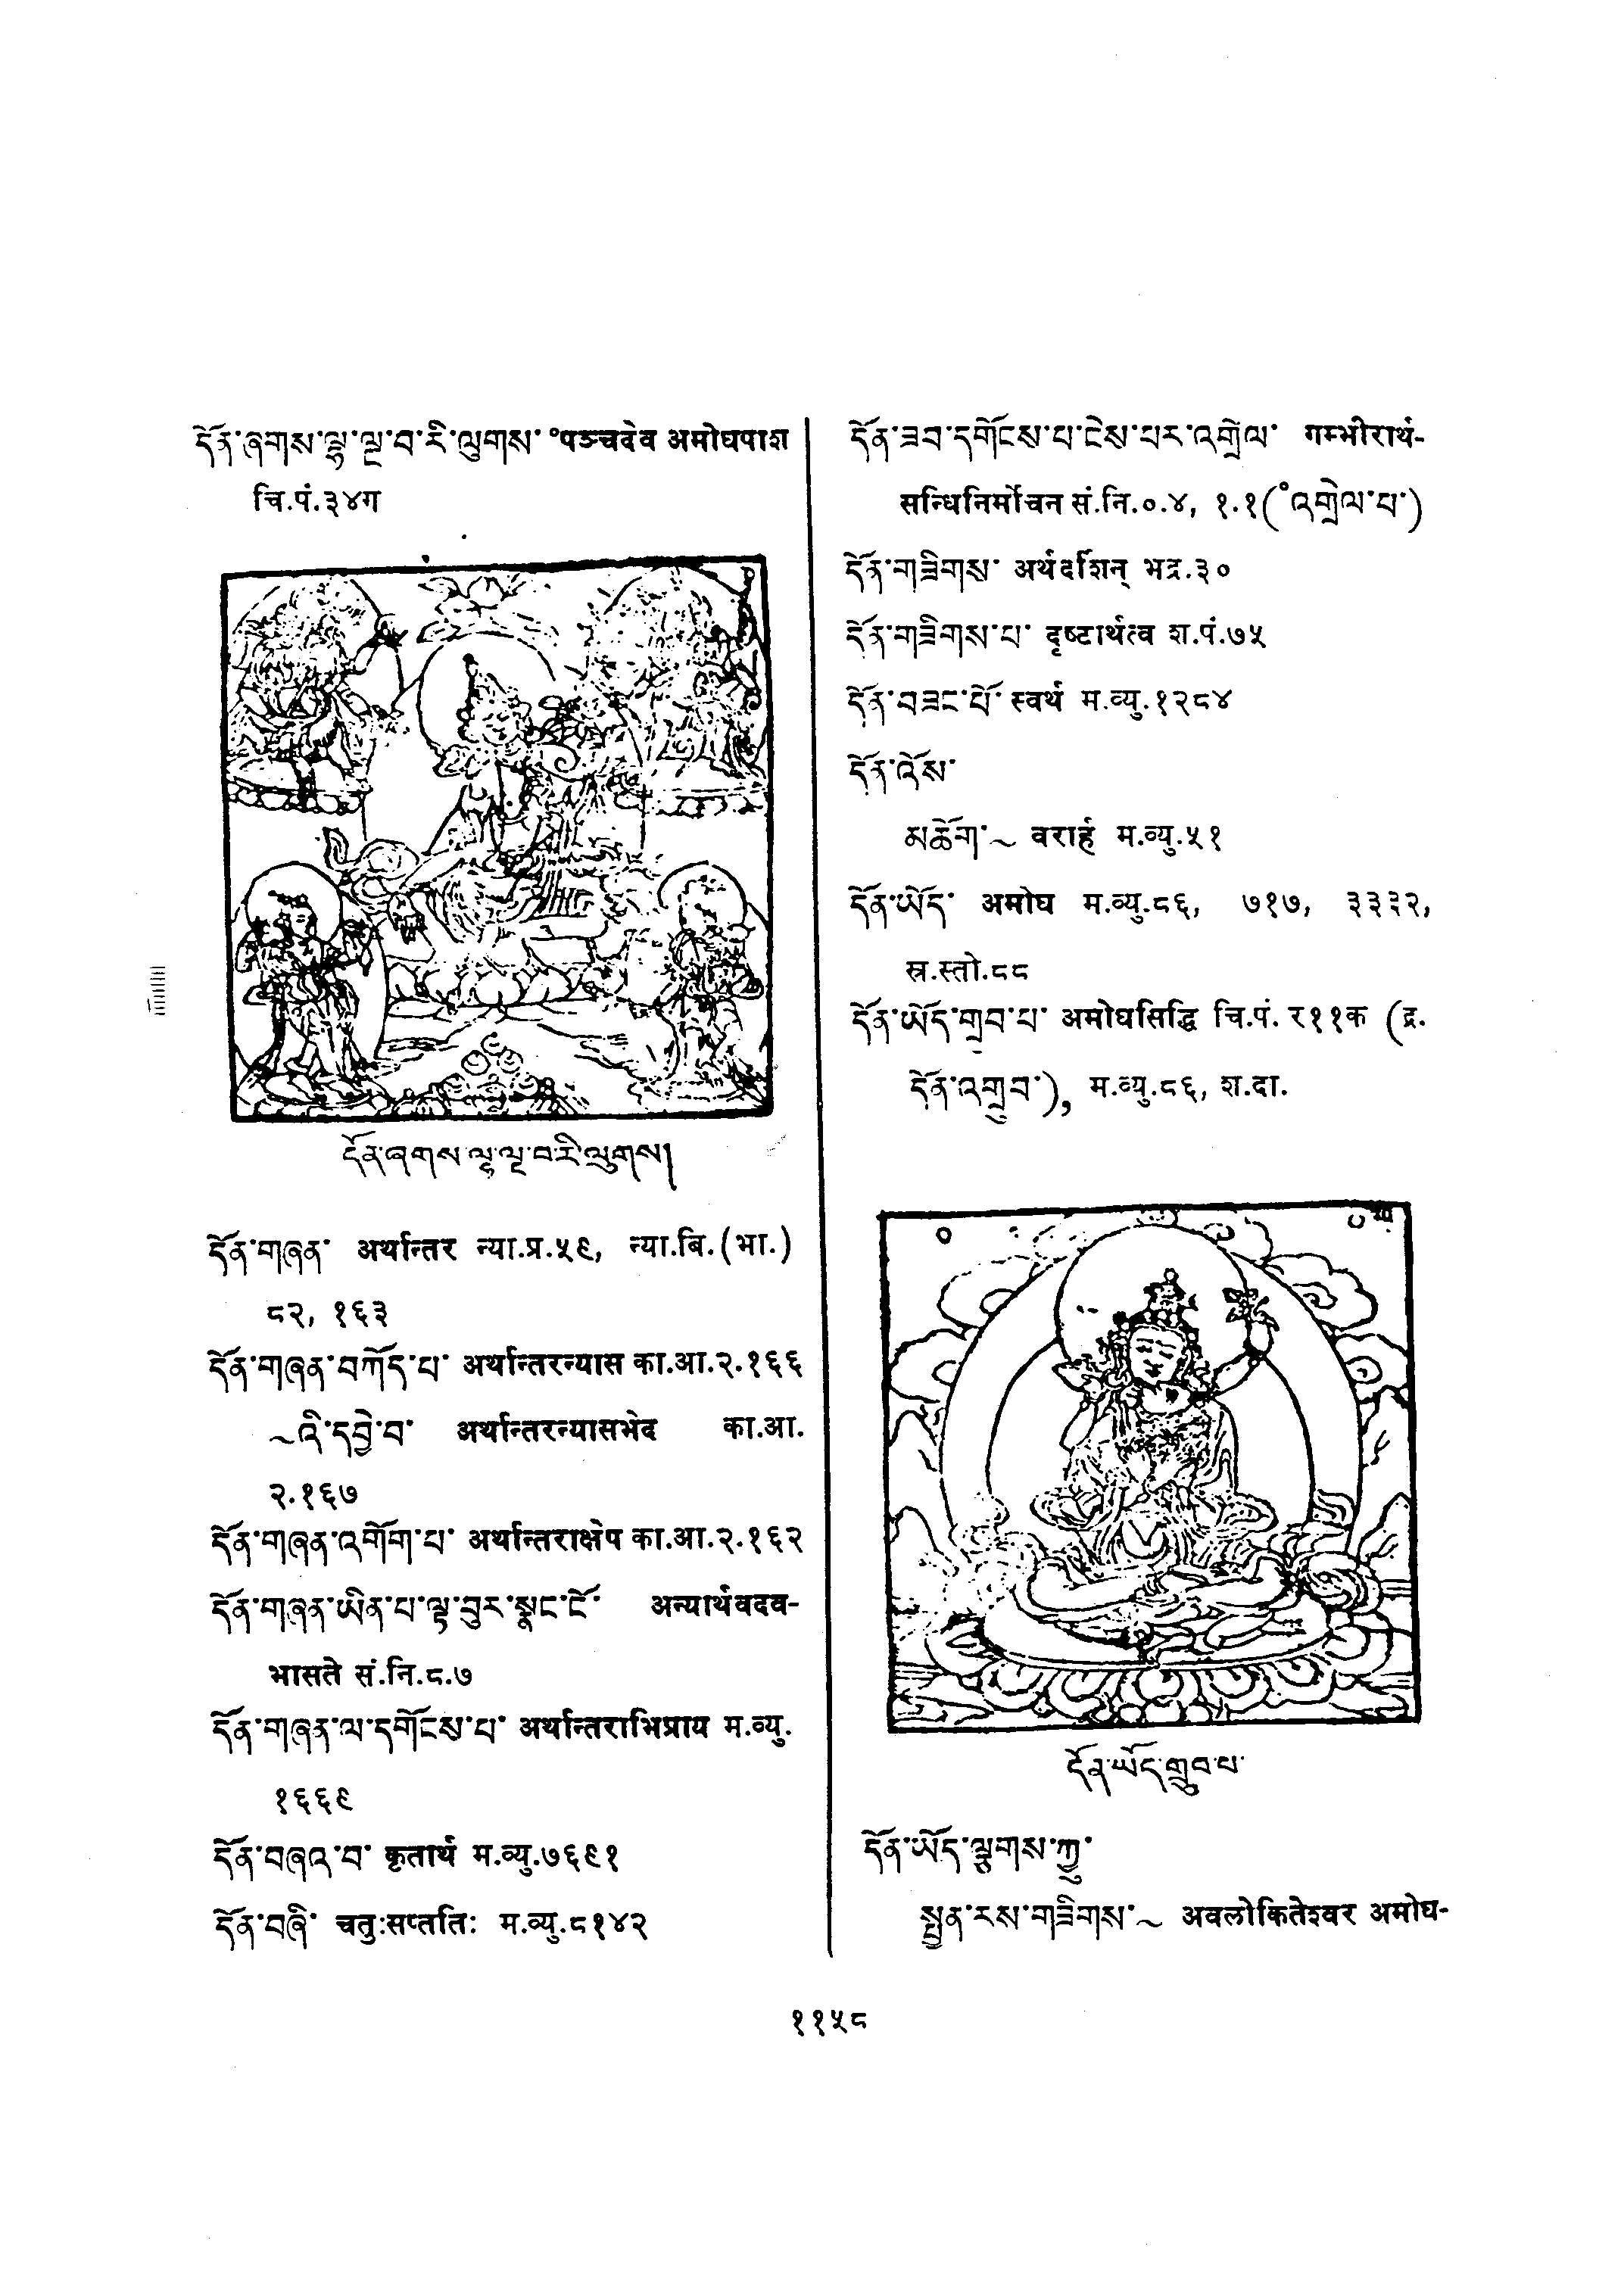 དོན་ཞགས་ལྷ་ལྔ་བ་རི་ལུགས་ °पञ्चदेव अमोघपाश
चि.पं.३४ग
དོན་ཞགས་ལྷ་ལྔ་བ་རི་ལུགས།
དོན་གཞན་ अर्थान्तर न्या.प्र.५९, न्या.बि.(भा.)
८२, १६३
དོན་གཞན་བཀོད་པ་ अर्थान्तरन्यास का.आ.२.१६६
~འི་དབྱེ་བ་ अर्थान्तरन्यासभेद का.आ.
२.१६७
དོན་གཞན་འགོག་པ་ अर्थान्तराक्षेप का.आ.२.१६२
དོན་གཞན་ཡིན་པ་ལྟ་བུར་སྣང་ངོ་ अन्यार्थवदव-
भासते सं.नि.८.७
དོན་གཞན་ལ་དགོངས་པ་ अर्थान्तराभिप्राय म.व्यु.
१६६९
དོན་བཞའ་བ་ कृतार्थ म.व्यु.७६९१
དོན་བཞི་ चतुःसप्ततिः म.व्यु.८१४२
དོན་ཟབ་དགོངས་པ་ངེས་པར་འགྲེལ་ गम्भीरार्थ-
सन्धिनिर्मोचन सं.नि.०.४, १.१(°འགྲེལ་པ་)
དོན་གཟིགས་ अर्थदर्शिन् भद्र.३०
དོན་གཟིགས་པ་ दृष्टार्थत्व श.पं.७५
དོན་བཟང་པོ་ स्वर्थ म.व्यु.१२८४
དོན་འོས་
མཆོག་~ वरार्ह म.व्यु.५१
དོན་ཡོད་ अमोघ म.व्यु.८६, ७१७, ३३३२,
स्र.स्तो.८८
དོན་ཡོད་གྲུབ་པ་ अमोघसिद्धि चि.पं. र११क (द्र.
དོན་འགྲུབ་), म.व्यु.८६, श.दा.
དོན་ཡོད་གྲུབ་པ་
དོན་ཡོད་ལྕགས་ཀྱུ་
སྤྱན་རས་གཟིགས་~ अवलोकितेश्वर अमोघ-
११५८